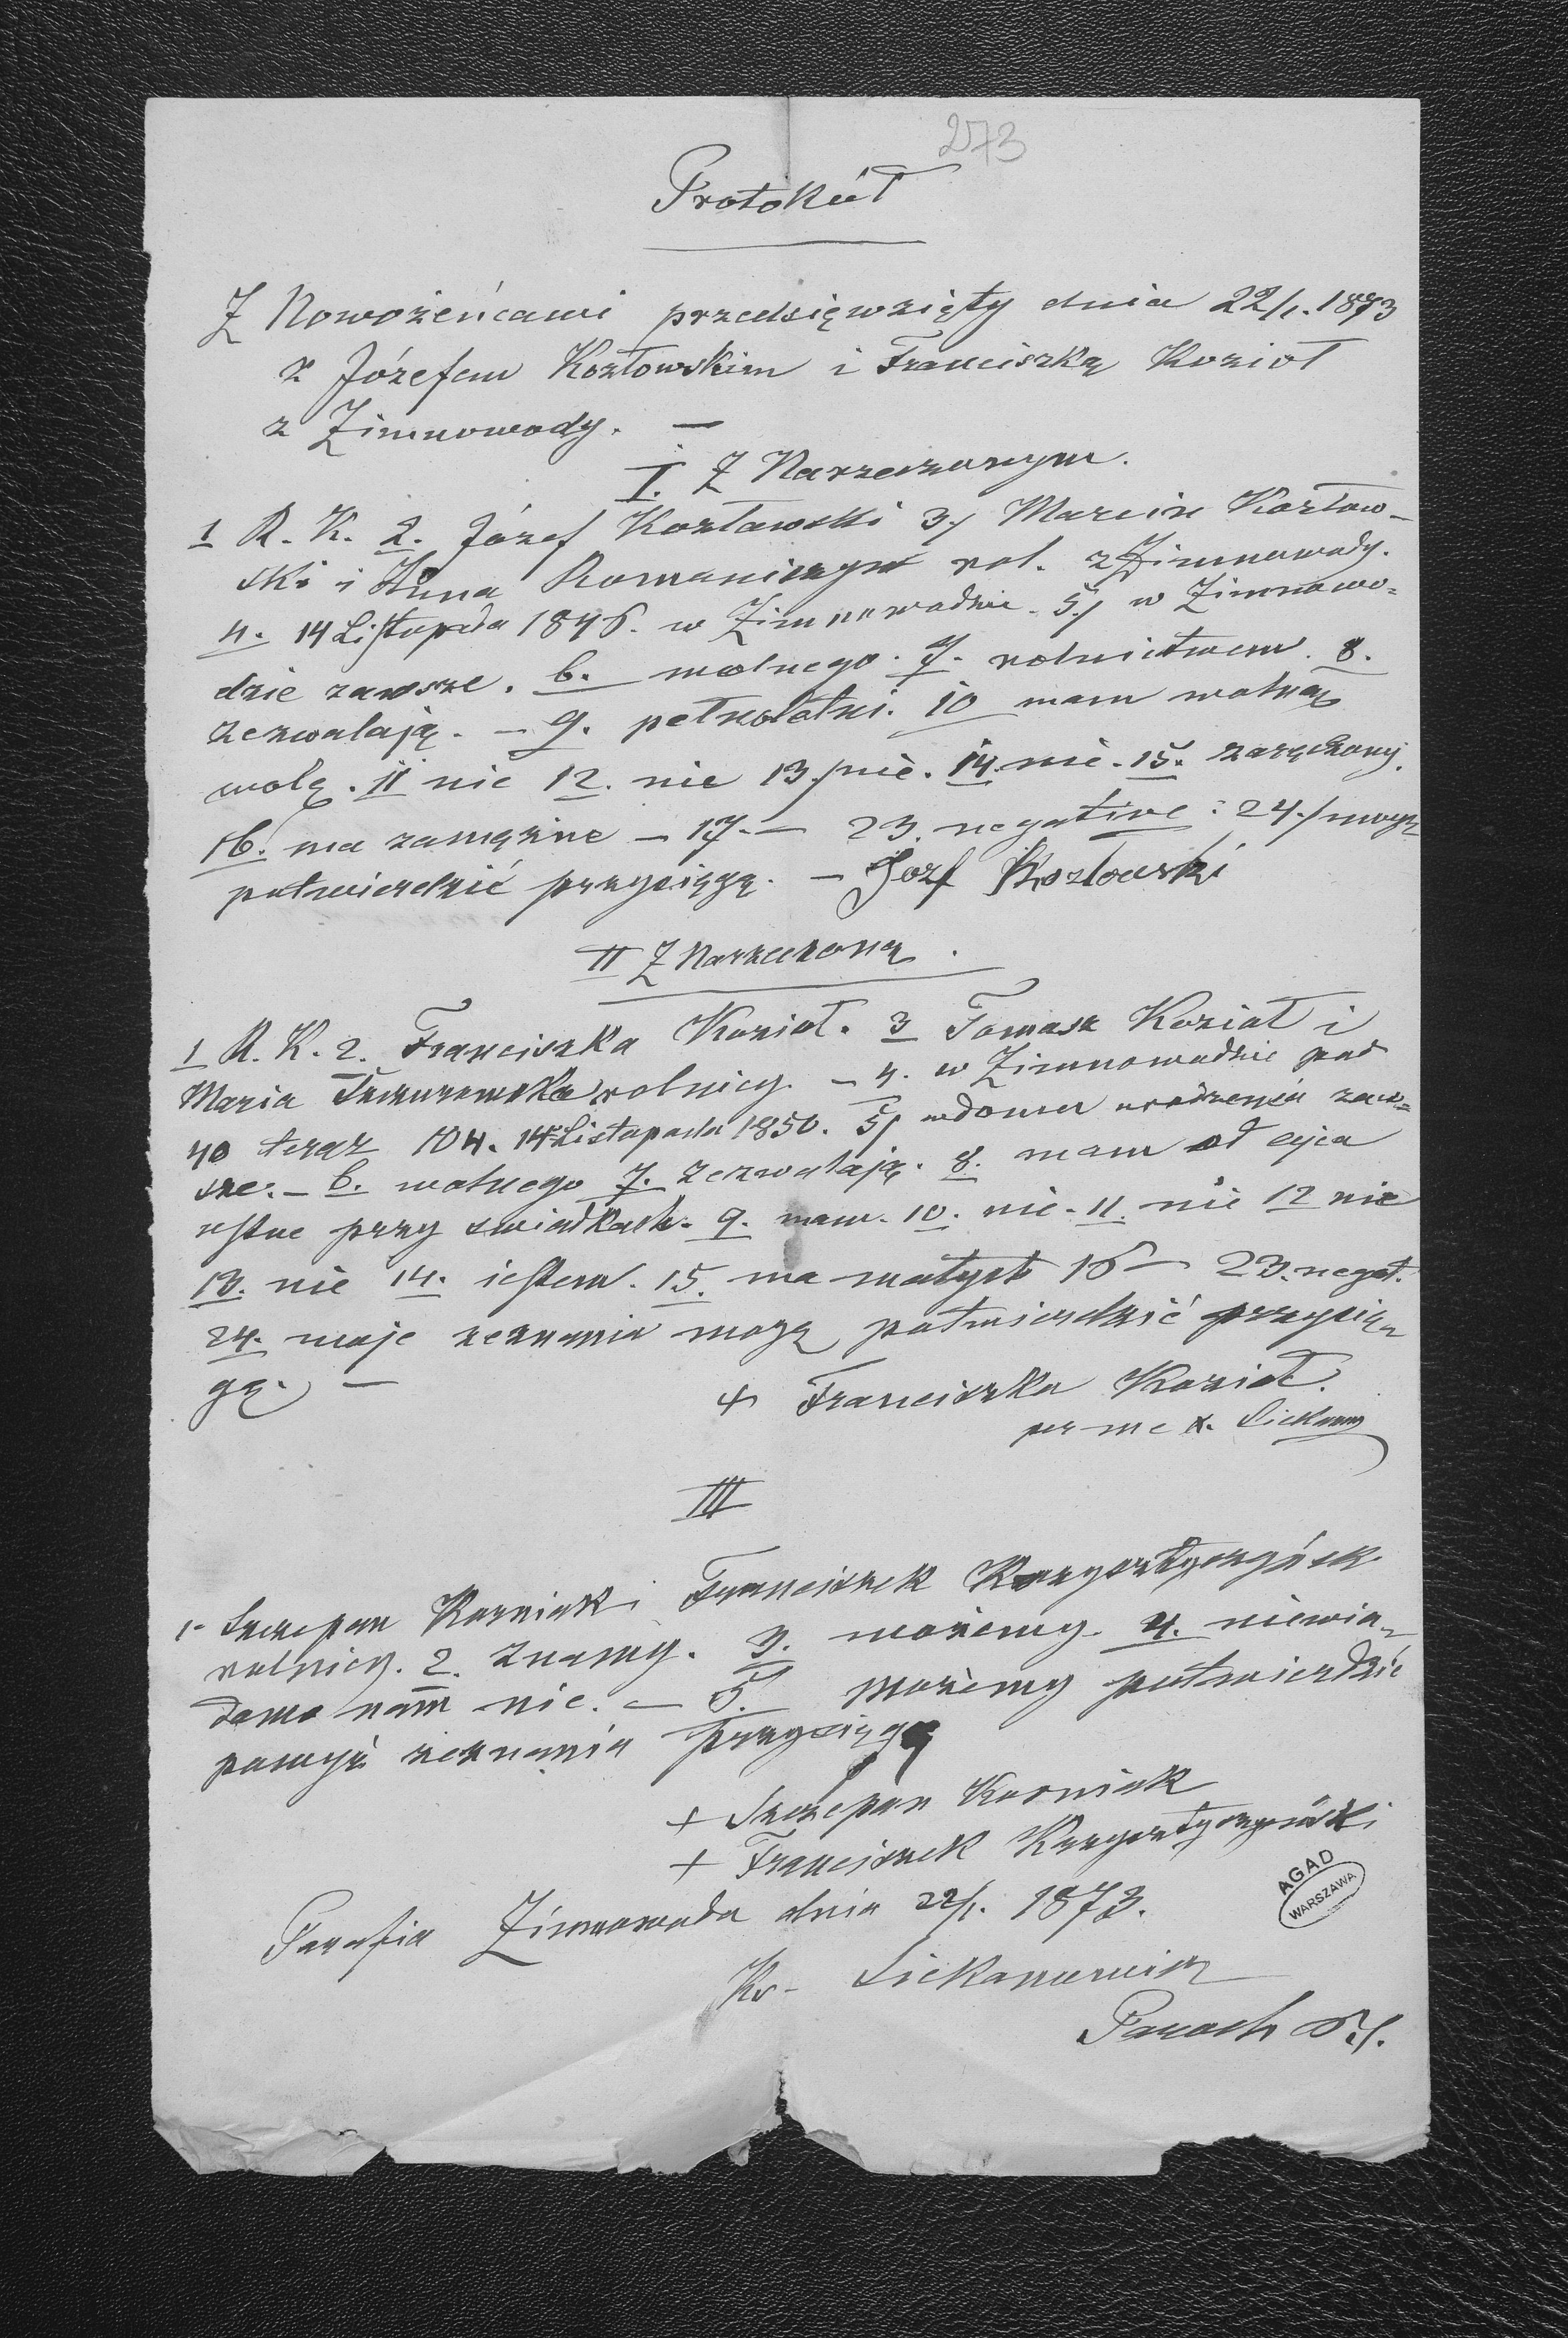 273
Protokół
Z Nowożeńcami przedsięwzięty dnia 22/1. 1873
z Józefem Kozłowskim i Franciszką Kozioł
z Zimnowody. —
I. Z Narzeczonym.
1 R. K. 2. Józef Kozłowski 3/ Marcin Kozłow-
ski i Anna rol. z Zimnowody.
4. 14 Listopada 1846. w Zimnowodzie. 5/ w Zimnowo-
dzie zawsze. 6. wolnego. 7. rolnictwem. 8.
zezwalają. — 9. pełnoletni. 10 mam wolną
wolę. 11 nie 12. nie 13/ nie. 14. nie. 15. zaręczony.
16. na zamężne — 17. — 23. negative: 24./ mogę
potwierdzić przysięgą. — Jozf Kozłowski
II Z Narzeczoną.
1 R. K. 2. Franciszka Kozioł. 3 Tomasz Kozioł i
Maria rolnicy. — 4. w Zimnowodzie pod
40 teraz 104. 14 Listopada 1850. 5/ w domu urodzenia zaw=
sze. — 6. wolnego 7. zezwalają. 8. mam od ojca
ustne przy swiadkach. 9. mam. 10. nie. 11. nie 12 nie
13. nie 14. iestem. 15. na małych 16 — 23. negat.
24. moje zeznania mogę potwierdzić przysię-
gą. —
+ Franciszka Kozioł.
per me X.
III
1. Szczepan Kozniak i Franciszek
rolnicy. 2. Znamy. 3. możemy. 4. niewia-
domo nam nic. — 5. możemy potwierdzić
powyż zeznania przysięgą
+ Szczepan Kozniak
+ Franciszek
Parafia Zimnowoda dnia 22/1. 1873.
Ks.
Paroch
AGAD
WARSZAWA